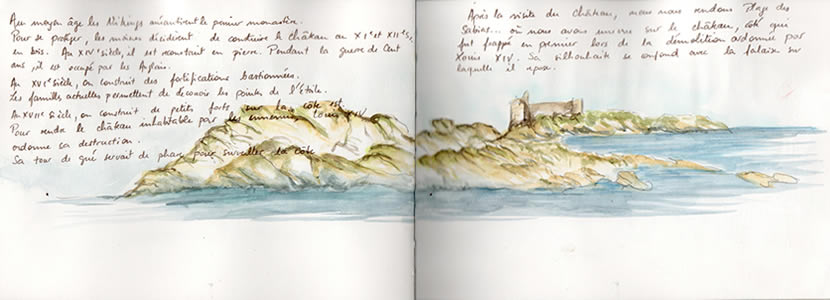 Au moyen âge les Vikings anéantirent le premier monastère.
Pour se protéger, les moines décidèrent de construire le château au XI e et XII e S,
en bois. Au XIV e siècle, il est reconstruit en pierre. Pendant la guerre de Cent
ans, il est occupé par les Anglais.
Au XVI e siècle, on construit des fortifications bastionnées.
Les familles actuelles permettent de les points de l'étoile.
Au XVII e siècle, on construit de petits forts sur la côte et
Pour rendre le château inhabitable par les ennemis, Louis XIV
ordonne sa destruction.
Sa tour de gué servait de phare pour surveiller la côte
Après la visite du château, nous nous rendons Plage des
Sabias... où nous avons une vue sur le château, côté qui
fut frappé en premier lors de la démolition ordonnée par
Louis XIV. Sa silhouette se confond avec la falaise sur
laquelle il repose.